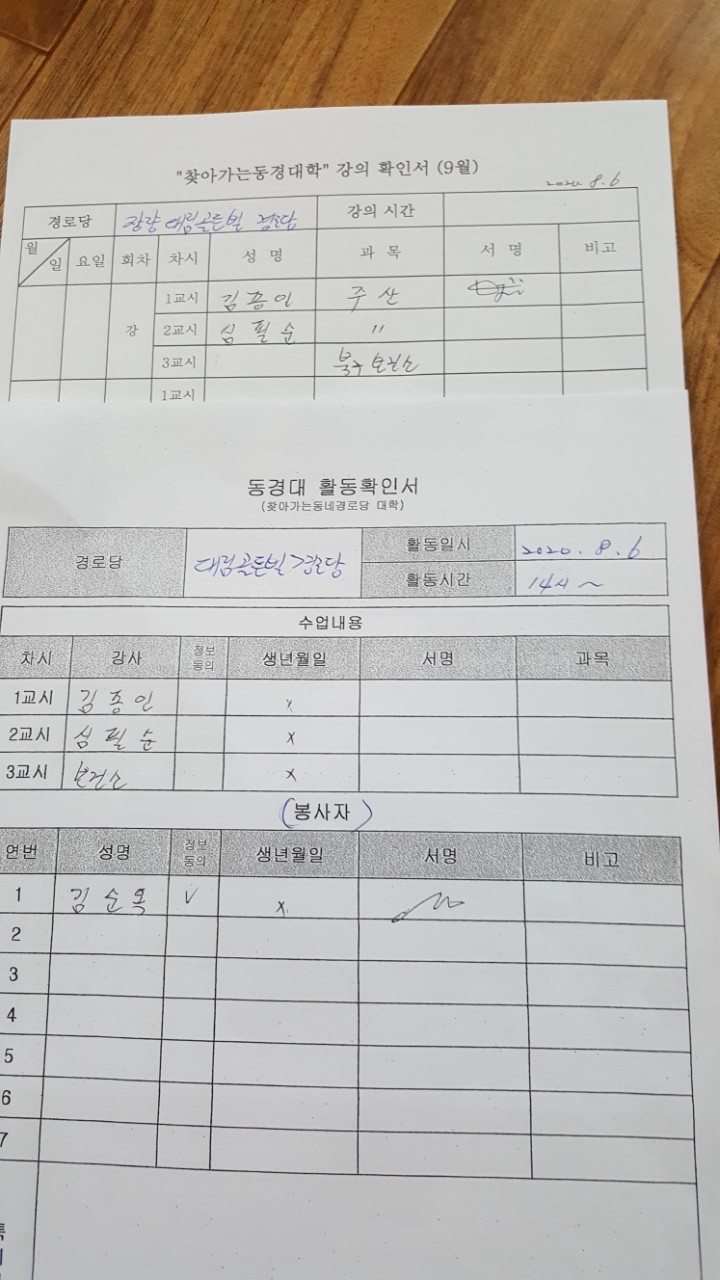 "찾아가는동경대학" 강의 확인서 (9월)
2020. 8. 6
경로당 장량 대림골든빌 경로당 강의 시간
월 일 요일 회차 차시 성 명 과 목 서 명 비고
강
1교시 김종인 주산
2교시 심필순 〃
3교시 북구보건소
1교시
동경대 활동확인서
(찾아가는동네경로당 대학)
경로당 대림골든빌경로당 활동일시 2020. 8. 6
활동시간 14시 ~
수업내용
차시 강사 정보동의 생년월일 서명 과목
1교시 김종인 x
2교시 심필순 x
3교시 보건소 x
(봉사자)
연번 성명 정보동의 생년월일 서명 비고
1 김순옥 V x
2
3
4
5
6
7